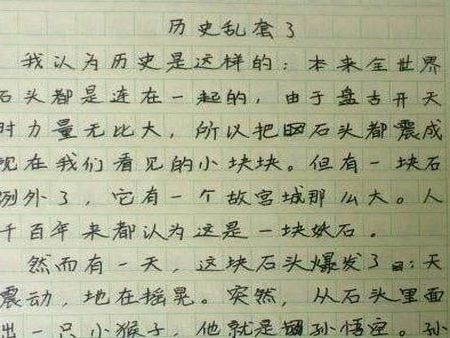 历史乱套了
我认为历史是这样的：本来全世界
石头都是连在一起的，由于盘古开天
时力量无比大，所以把石头都震成
现在我们看见的小块块。但有一块石
例外了，它有一个故宫城那么大。人
千百年来都认为这是一块妖石。
然而有一天，这块石头爆发了：天
震动，地在摇晃。突然，从石头里面
出一只小猴子，他就是孙悟空。孙